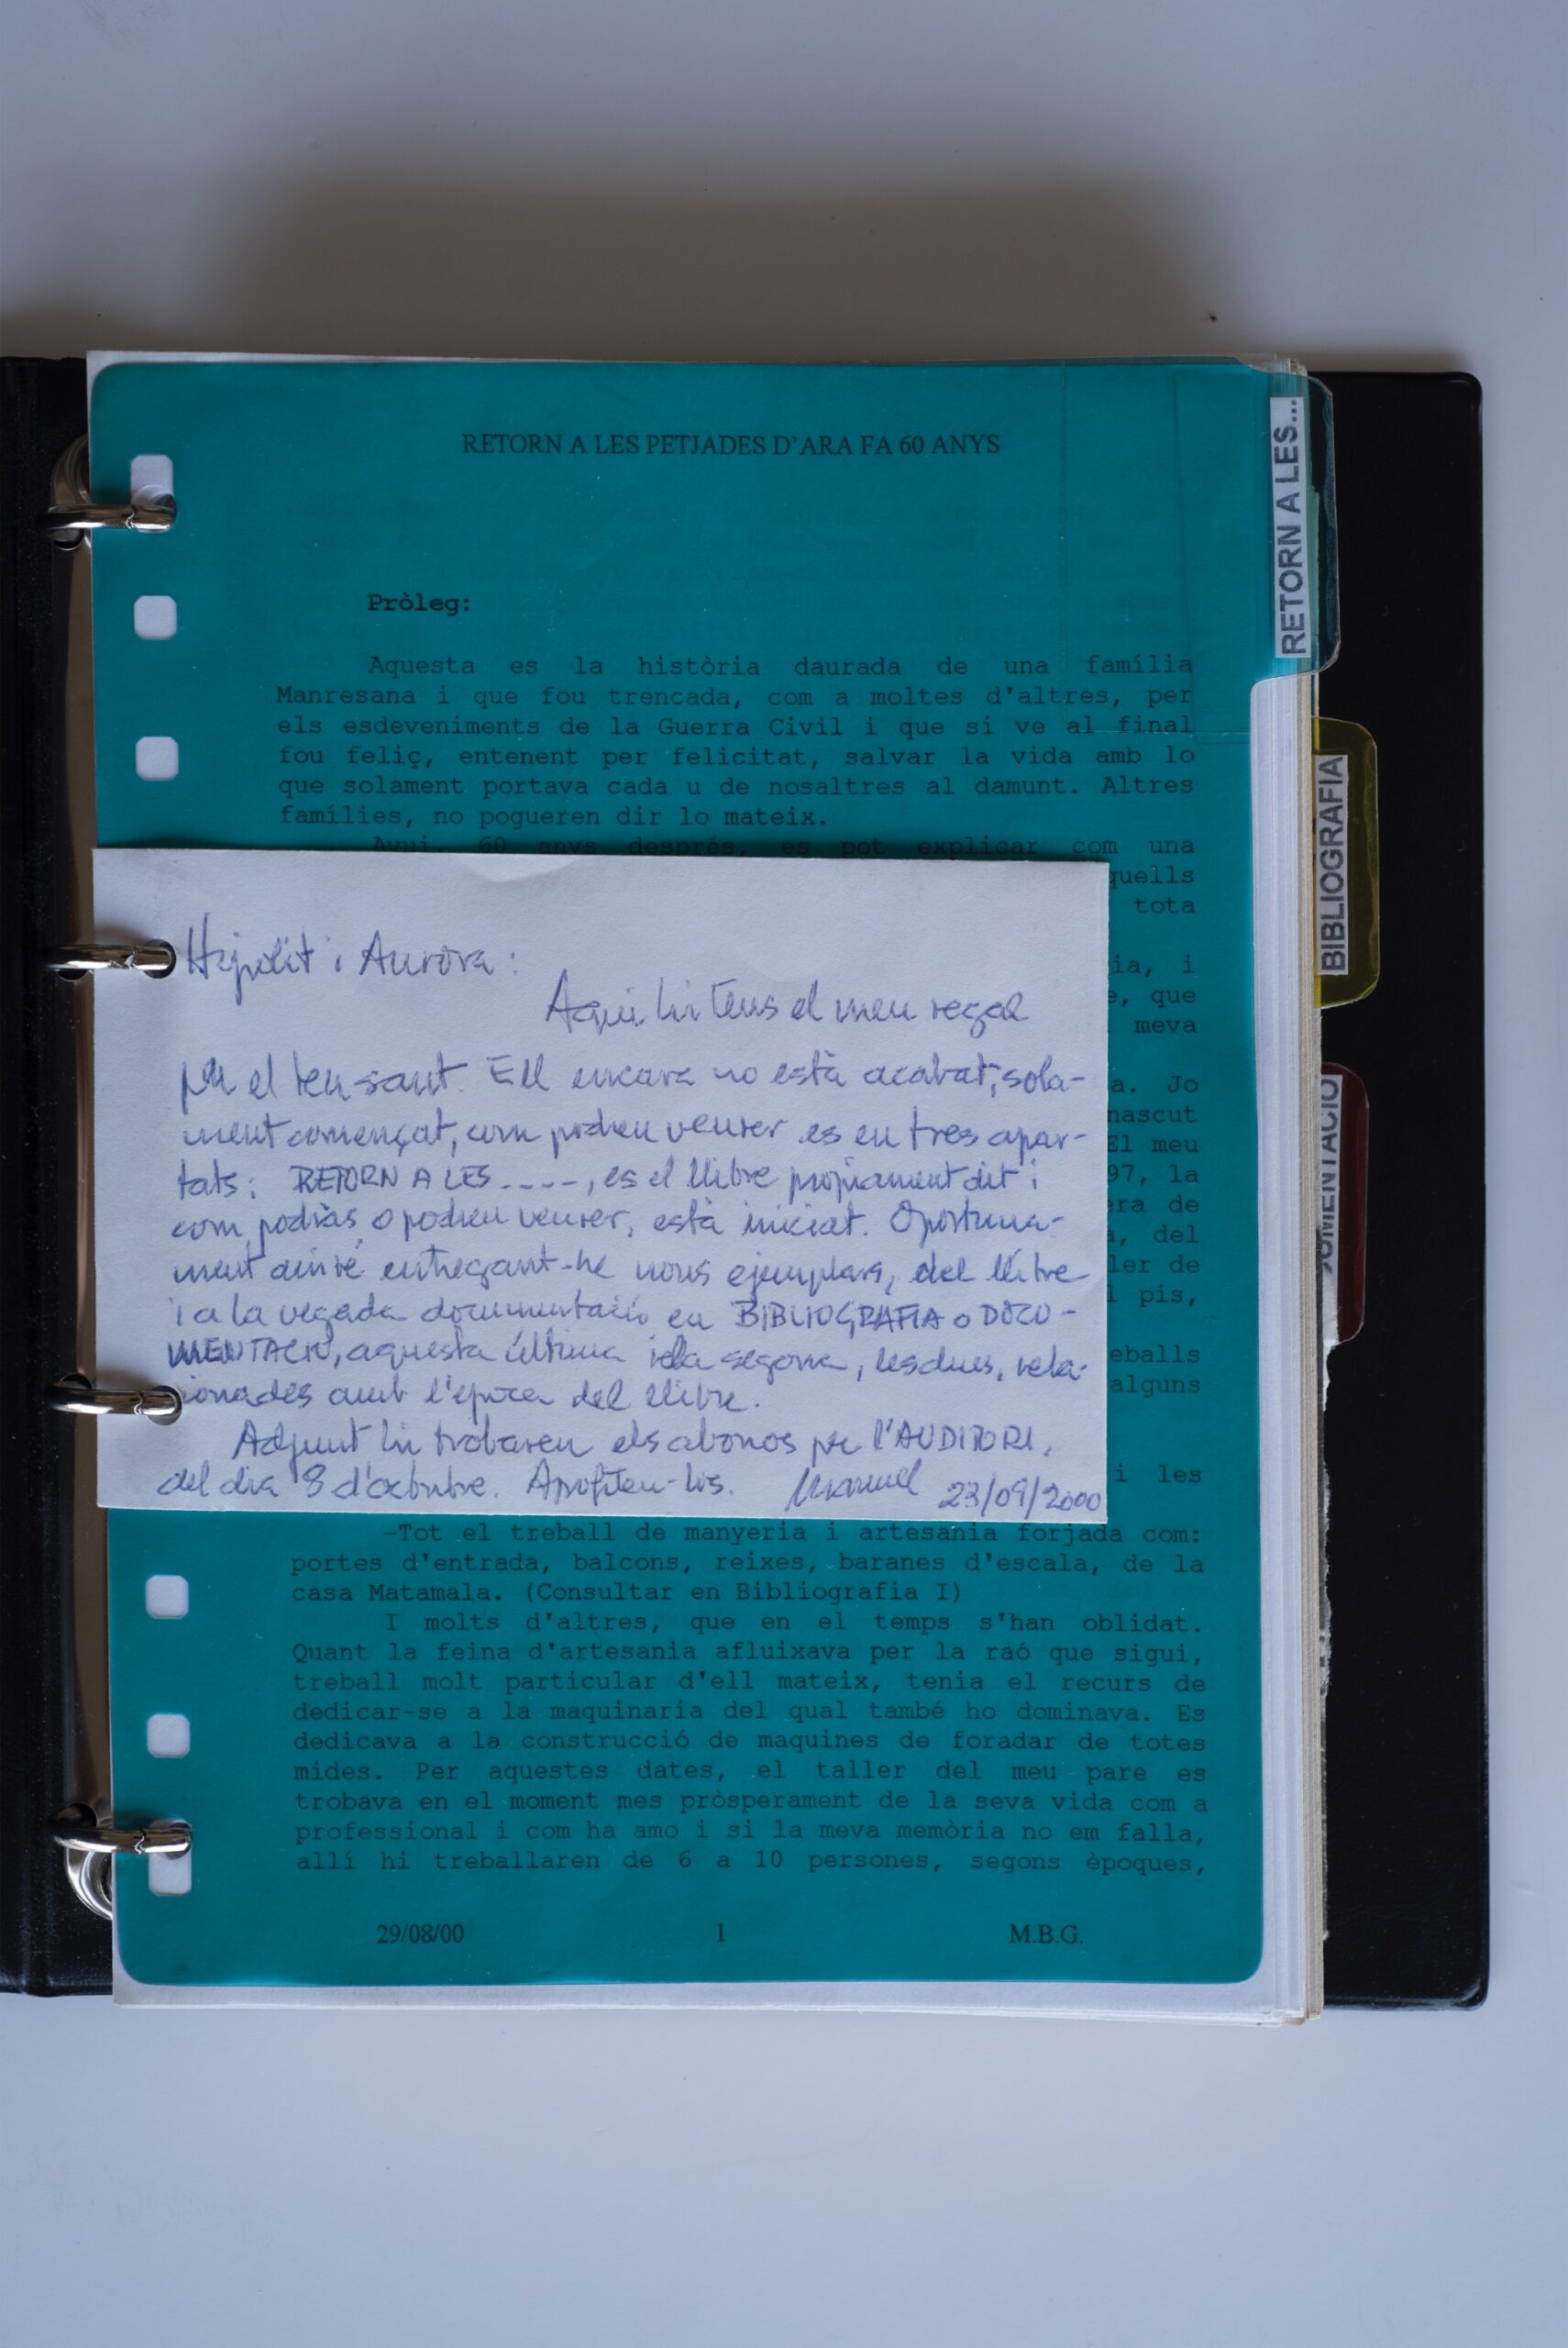 RETORN A LES PETJADES D'ARA FA 60 ANYS
Pròleg:
Aquesta es la història daurada de una família
Manresana i que fou trencada, com a moltes d'altres, per
els esdeveniments de la Guerra Civil i que si ve al final
fou feliç, entenent per felicitat, salvar la vida amb lo
que solament portava cada u de nosaltres al damunt. Altres
famílies, no pogueren dir lo mateix.
Avui, 60 anys després, es pot explicar com una
quells
tota
ia, i
e, que
meva
a. Jo
nascut
El meu
97, la
era de
a, del
ler de
l pis,
eballs
alguns
i les
Hipòlit i Aurora:
Aqui hi tens el meu regal
per el teu sant. Ell encara no està acabat, sola-
ment començat, com podreu veurer es en tres apar-
tats: RETORN A LES ----, es el llibre propiament dit i
com podràs o podreu veurer, està iniciat. Oportuna-
ment aniré entregant-ne nous ejemplars, del llibre
i a la vegada documentació en BIBLIOGRAFIA o DOCU-
MENTACIÓ, aquesta última i la segona, les dues, rela-
cionades amb l'època del llibre.
Adjunt hi trobareu els abonos per l'AUDITORI,
del dia 8 d'octubre. Aprofiteu-los. Manuel 23/09/2000
-Tot el treball de manyeria i artesania forjada com:
portes d'entrada, balcons, reixes, baranes d'escala, de la
casa Matamala. (Consultar en Bibliografia I)
I molts d'altres, que en el temps s'han oblidat.
Quant la feina d'artesania afluixava per la raó que sigui,
treball molt particular d'ell mateix, tenia el recurs de
dedicar-se a la maquinaria del qual també ho dominava. Es
dedicava a la construcció de maquines de foradar de totes
mides. Per aquestes dates, el taller del meu pare es
trobava en el moment mes pròsperament de la seva vida com a
professional i com ha amo i si la meva memòria no em falla,
allí hi treballaren de 6 a 10 persones, segons èpoques,
29/08/00 1 M.B.G.
RETORN A LES...
BIBLIOGRAFIA
UMENTACIÓ